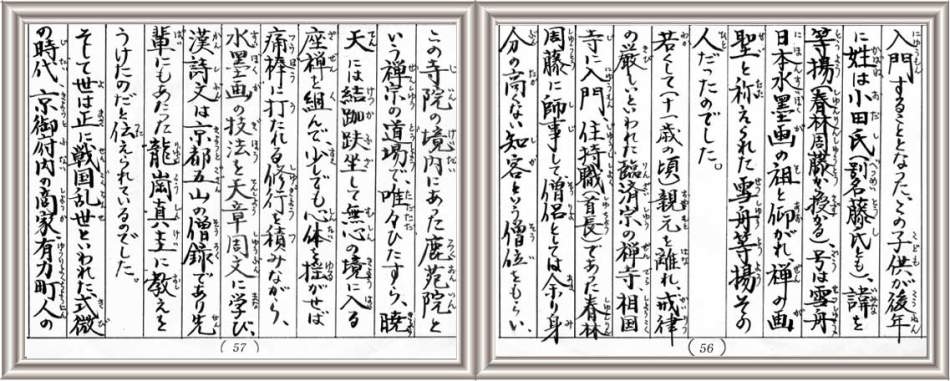 入門することとなった、この子供が後年
に姓は小田氏(別名藤氏とも)、諱を
等揚(春林周藤が授かる)、号は雪舟
日本水墨画の祖と仰がれ、禅の画
聖と称えられた雪舟等揚その
人だったのでした。
若くして(十一歳の頃)親元を離れ、戒律
の厳しいといわれた臨済宗の禅寺相国
寺に入門、住持職(首長)であった春林
周藤に師事して僧侶としては余り身
分の高くない知客という僧位をもらい、
(56)
この寺院の境内にあった鹿苑院と
いう禅宗の道場で唯々ひたすら、暁
天には結跏趺坐して無心の境に入る
座禅を組んで、少しでも心体を揺がせば
痛棒に打たれる修行を積みながら、
水墨画の技法を天章周文に学び、
漢詩文は京都五山の僧録であり先
輩にもあたった龍崗真圭に教えを
うけたのだと伝えられているのでした。
そして世は正に戦国乱世といわれた式微
の時代、京御府内の商家、有力町人の
(57)